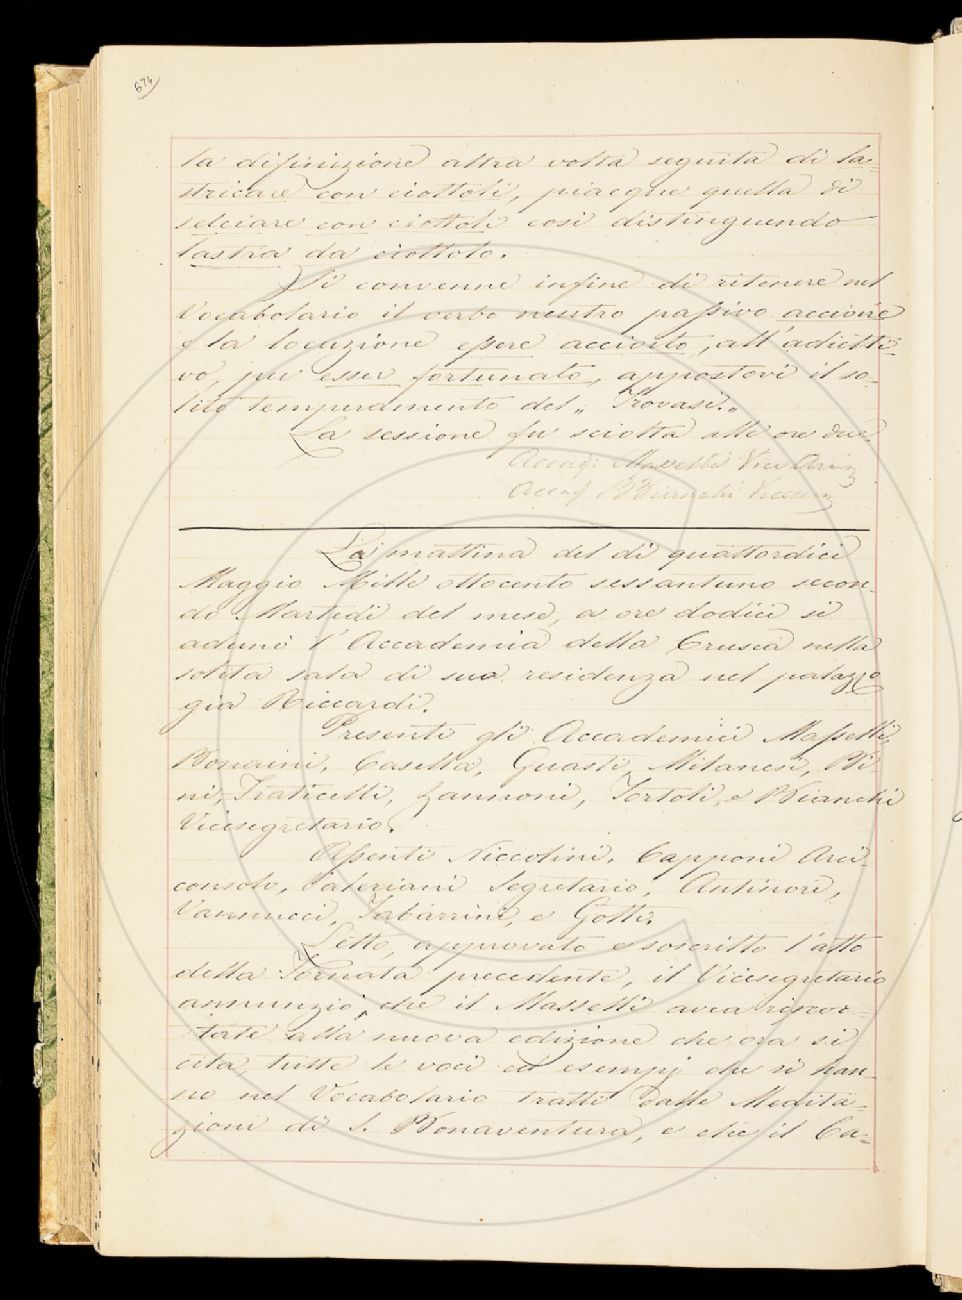 674
la difinizione altra volta seguita di la=
stricare con ciottoli, piacque quella di
selciare con ciottoli così distinguendo
lastra da ciottolo.
Si convenne infine di ritenere nel
Vocabolario il verbo neutro passivo accivire
e la locuzione essere accivito, all'adietti=
vo, per esser fortunato, appostovi il so=
lito temperamento del „ Trovasi.„
La sessione fu sciolta alle ore due.
Accad: Masselli Vice Arci
Accad B Bianchi Viceseg
La mattina del dì quattordici
Maggio Mille ottocento sessantuno secon=
do Martedì del mese, a ore dodici si
adunò l'Accademia della Crusca nella
solita sala di sua residenza nel palazzo
già Riccardi.
Presenti gli Accademici Masselli,
Bonaini, Casella, Guasti, Milanesi, Bi=
ni, Fraticelli, Zannoni, Tortoli, e Bianchi
Vicesegretario.
Assenti Niccolini, Capponi Arci=
consolo, Valeriani Segretario, Antinori,
Vannucci, Tabarrini, e Gotti.
Letto, approvato e soscritto l'atto
della Tornata precedente, il Vicesegretario
annunziò, che il Masselli avea riscon=
trate alla nuova edizione che ora si
cita, tutte le voci ed esempj che si han=
no nel Vocabolario tratti dalle Medita=
zioni di S. Bonaventura, e che il Ca=